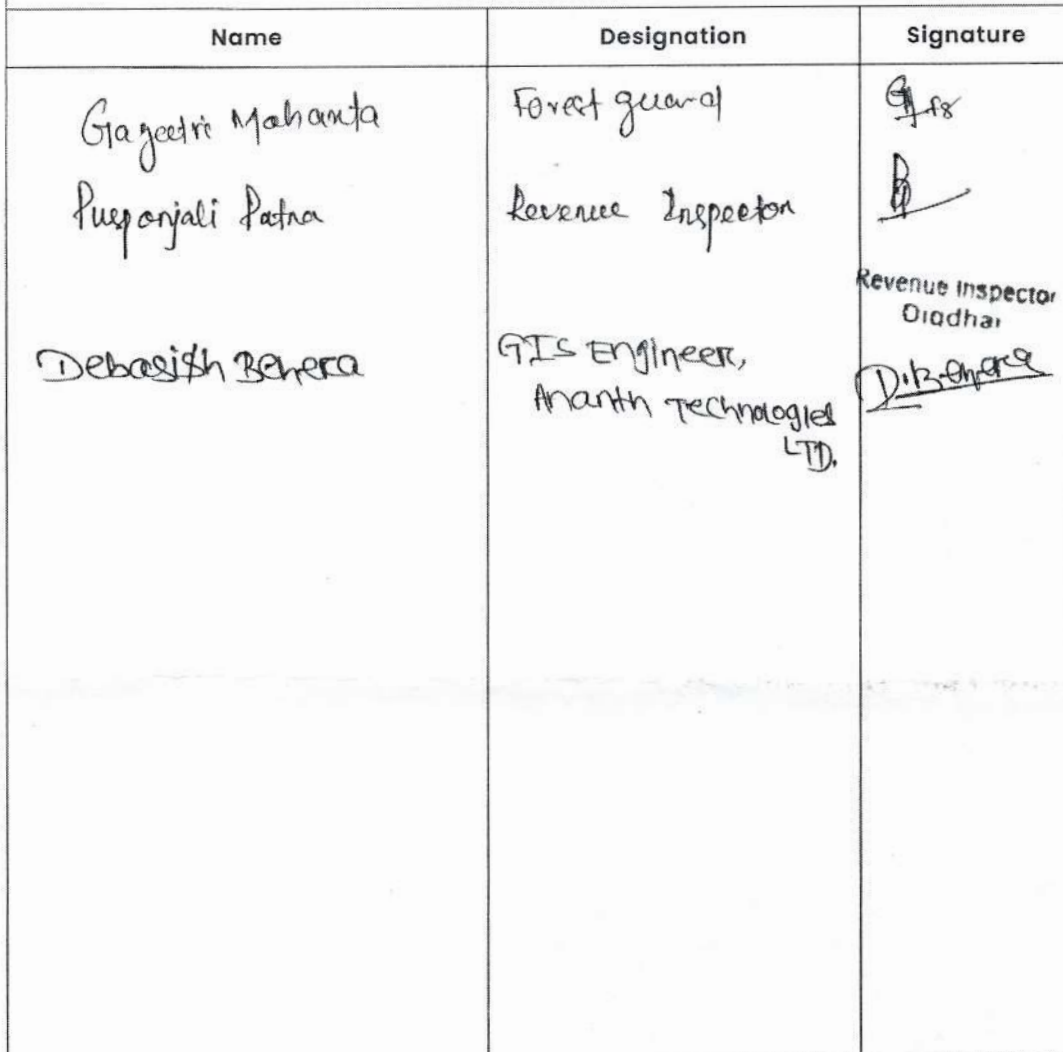 Name Designation Signature
Gayeetri Mahanta Forest guard
Pusponjali Patra Revenue Inspector
Revenue Inspector
Digdhar
Debasish Behera GIS Engineer, D.Behera
Ananth Technologies
LTD.